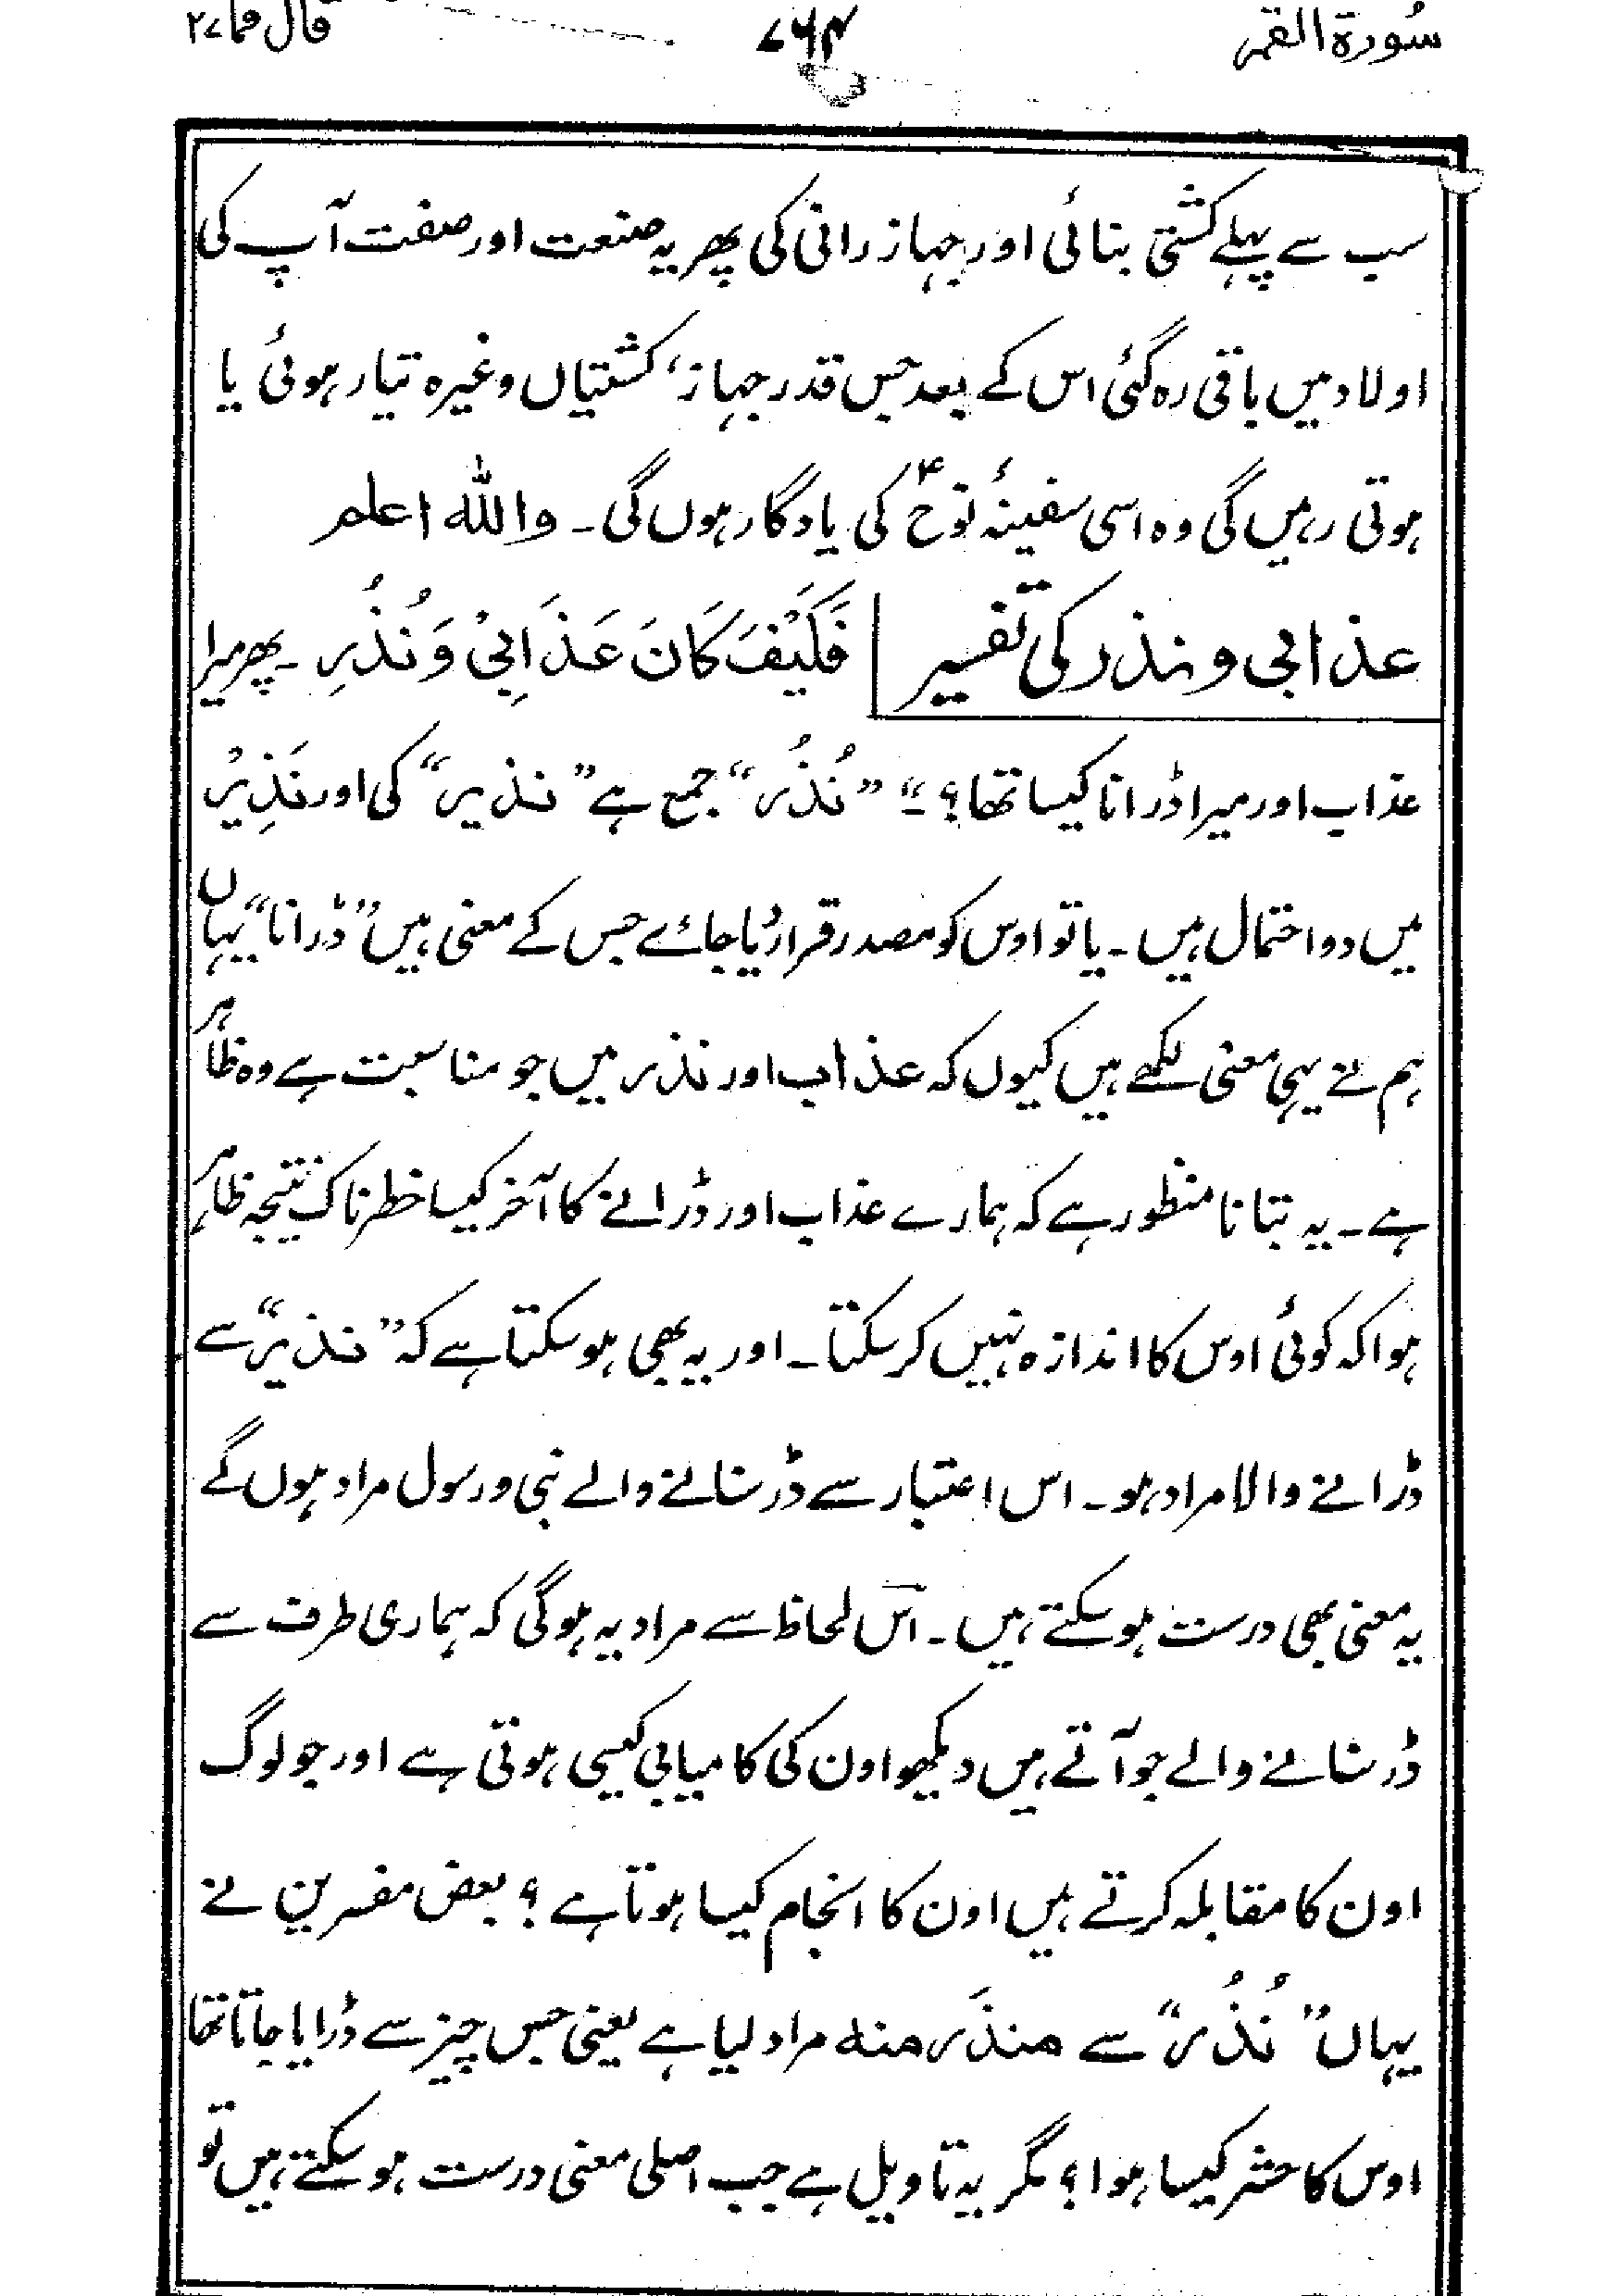 سُورة القمر ۷۶۴ قال فما ۲۷
سب سے پہلے کشتی بنائی اور جہاز رانی کی پھر یہ صنعت اور صفت آپ کی
اولاد میں باقی رہ گئی اس کے بعد جس قدر جہاز، کشتیاں وغیرہ تیار ہوئی یا
ہوتی رہیں گی وہ اسی سفینۂ نوحؑ کی یادگار ہوں گی۔ واللہ اعلم
عذابی و نذر کی تفسیر فَكَيْفَ كَانَ عَذَابِیْ وَنُذُرِ۔ پھر میرا
عذاب اور میرا ڈرانا کیسا تھا؟“۔ ”نُذُر“ جمع ہے ”نذیر“ کی اور نَذِیْرُ
میں دو احتمال ہیں۔ یا تو اوس کو مصدر قرار دیا جائے جس کے معنی ہیں ”ڈرانا“ یہاں
ہم نے یہی معنی لکھے ہیں کیوں کہ عذاب اور نذر میں جو مناسبت ہے وہ ظاہر
ہے۔ یہ بتانا منظور ہے کہ ہمارے عذاب اور ڈرانے کا آخر کیسا خطرناک نتیجہ ظاہر
ہوا کہ کوئی اوس کا اندازہ نہیں کر سکتا۔ اور یہ بھی ہو سکتا ہے کہ ”نذیر“ سے
ڈرانے والا مراد ہو۔ اس اعتبار سے ڈر سنانے والے نبی و رسول مراد ہوں گے
یہ معنی بھی درست ہو سکتے ہیں۔ اس لحاظ سے مراد یہ ہوگی کہ ہماری طرف سے
ڈر سنانے والے جو آتے ہیں دیکھو اون کی کامیابی کیسی ہوتی ہے اور جو لوگ
اون کا مقابلہ کرتے ہیں اون کا انجام کیسا ہوتا ہے؟ بعض مفسرین نے
یہاں ”نُذُر“ سے منذَر منہ مراد لیا ہے یعنی جس چیز سے ڈرایا جاتا تھا
اوس کا حشر کیسا ہوا؟ مگر یہ تاویل ہے جب اصلی معنی درست ہو سکتے ہیں تو